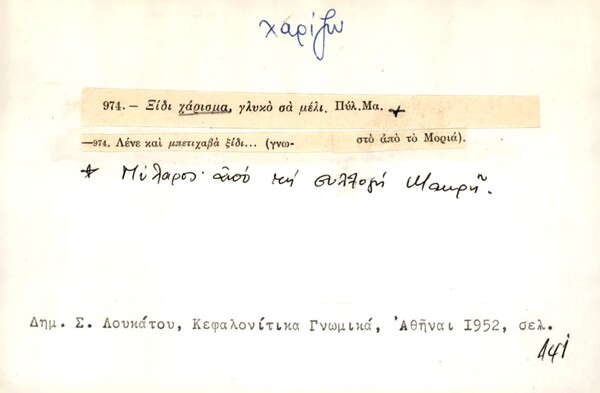 χαρίζω
974. — Ξίδι χάρισμα, γλυκὸ σὰ μέλι. Πύλ.Μα. +
—974. Λένε καὶ μπετιχαβὰ ξίδι... (γνω- στὸ ἀπὸ τὸ Μοριά).
* Πύλαρος· ἀπό τή συλλογή Μακρῆ.
Δημ. Σ. Λουκάτου, Κεφαλονίτικα Γνωμικά, Ἀθῆναι 1952, σελ.
141